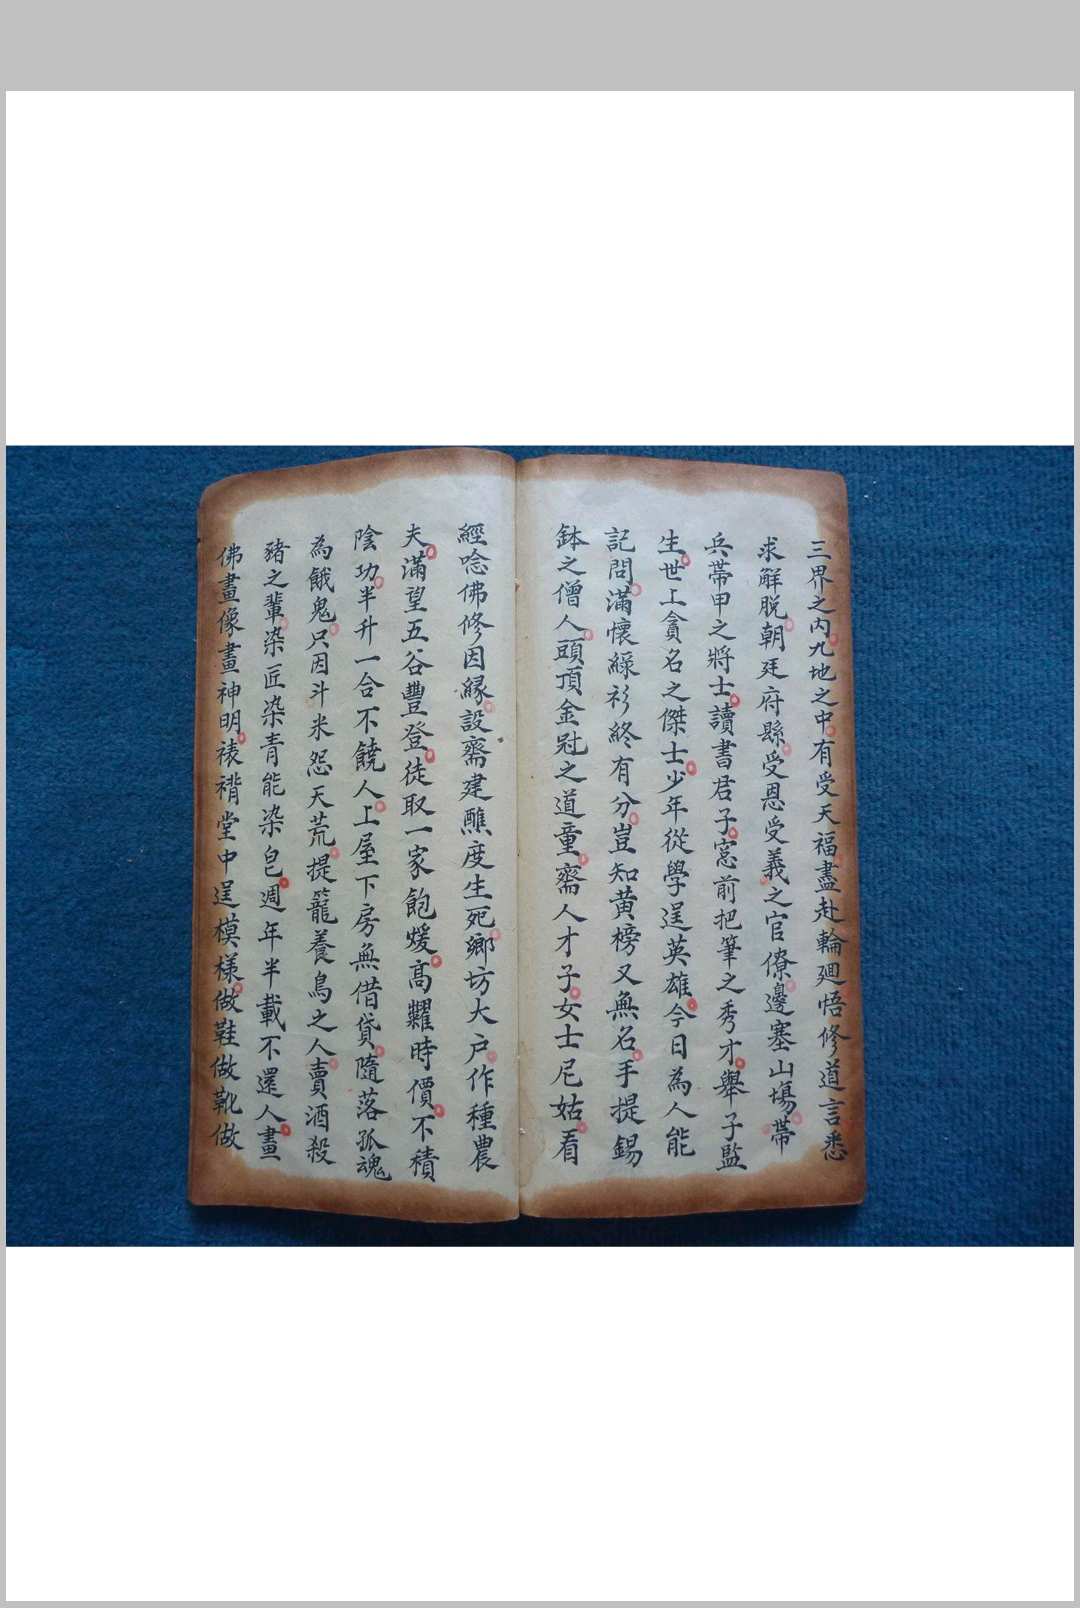 三界之内九地之中有受天福盡赴輪廻悟修道言悉
求解脱朝廷府縣受恩受義之官僚邊塞山塲帶
兵帶甲之將士讀書君子窓前把筆之秀才舉子監
生世上貪名之傑士少年從學逞英雄今日為人能
記問滿懷綠衫終有分豈知黄榜又無名手提錫
鉢之僧人頭頂金冠之道童齋人才子女士尼姑看
經唸佛修因緣設齋建醮度生死鄉坊大户作種農
夫滿望五谷豐登徒取一家飽煖高糶時價不積
陰功半升一合不饒人上屋下房無借貸隨落孤魂
為餓鬼只因斗米怨天荒提籠養鳥之人賣酒殺
豬之輩染匠染青能染皂週年半載不還人畫
佛畫像畫神明裱褙堂中逞模樣做鞋做靴做